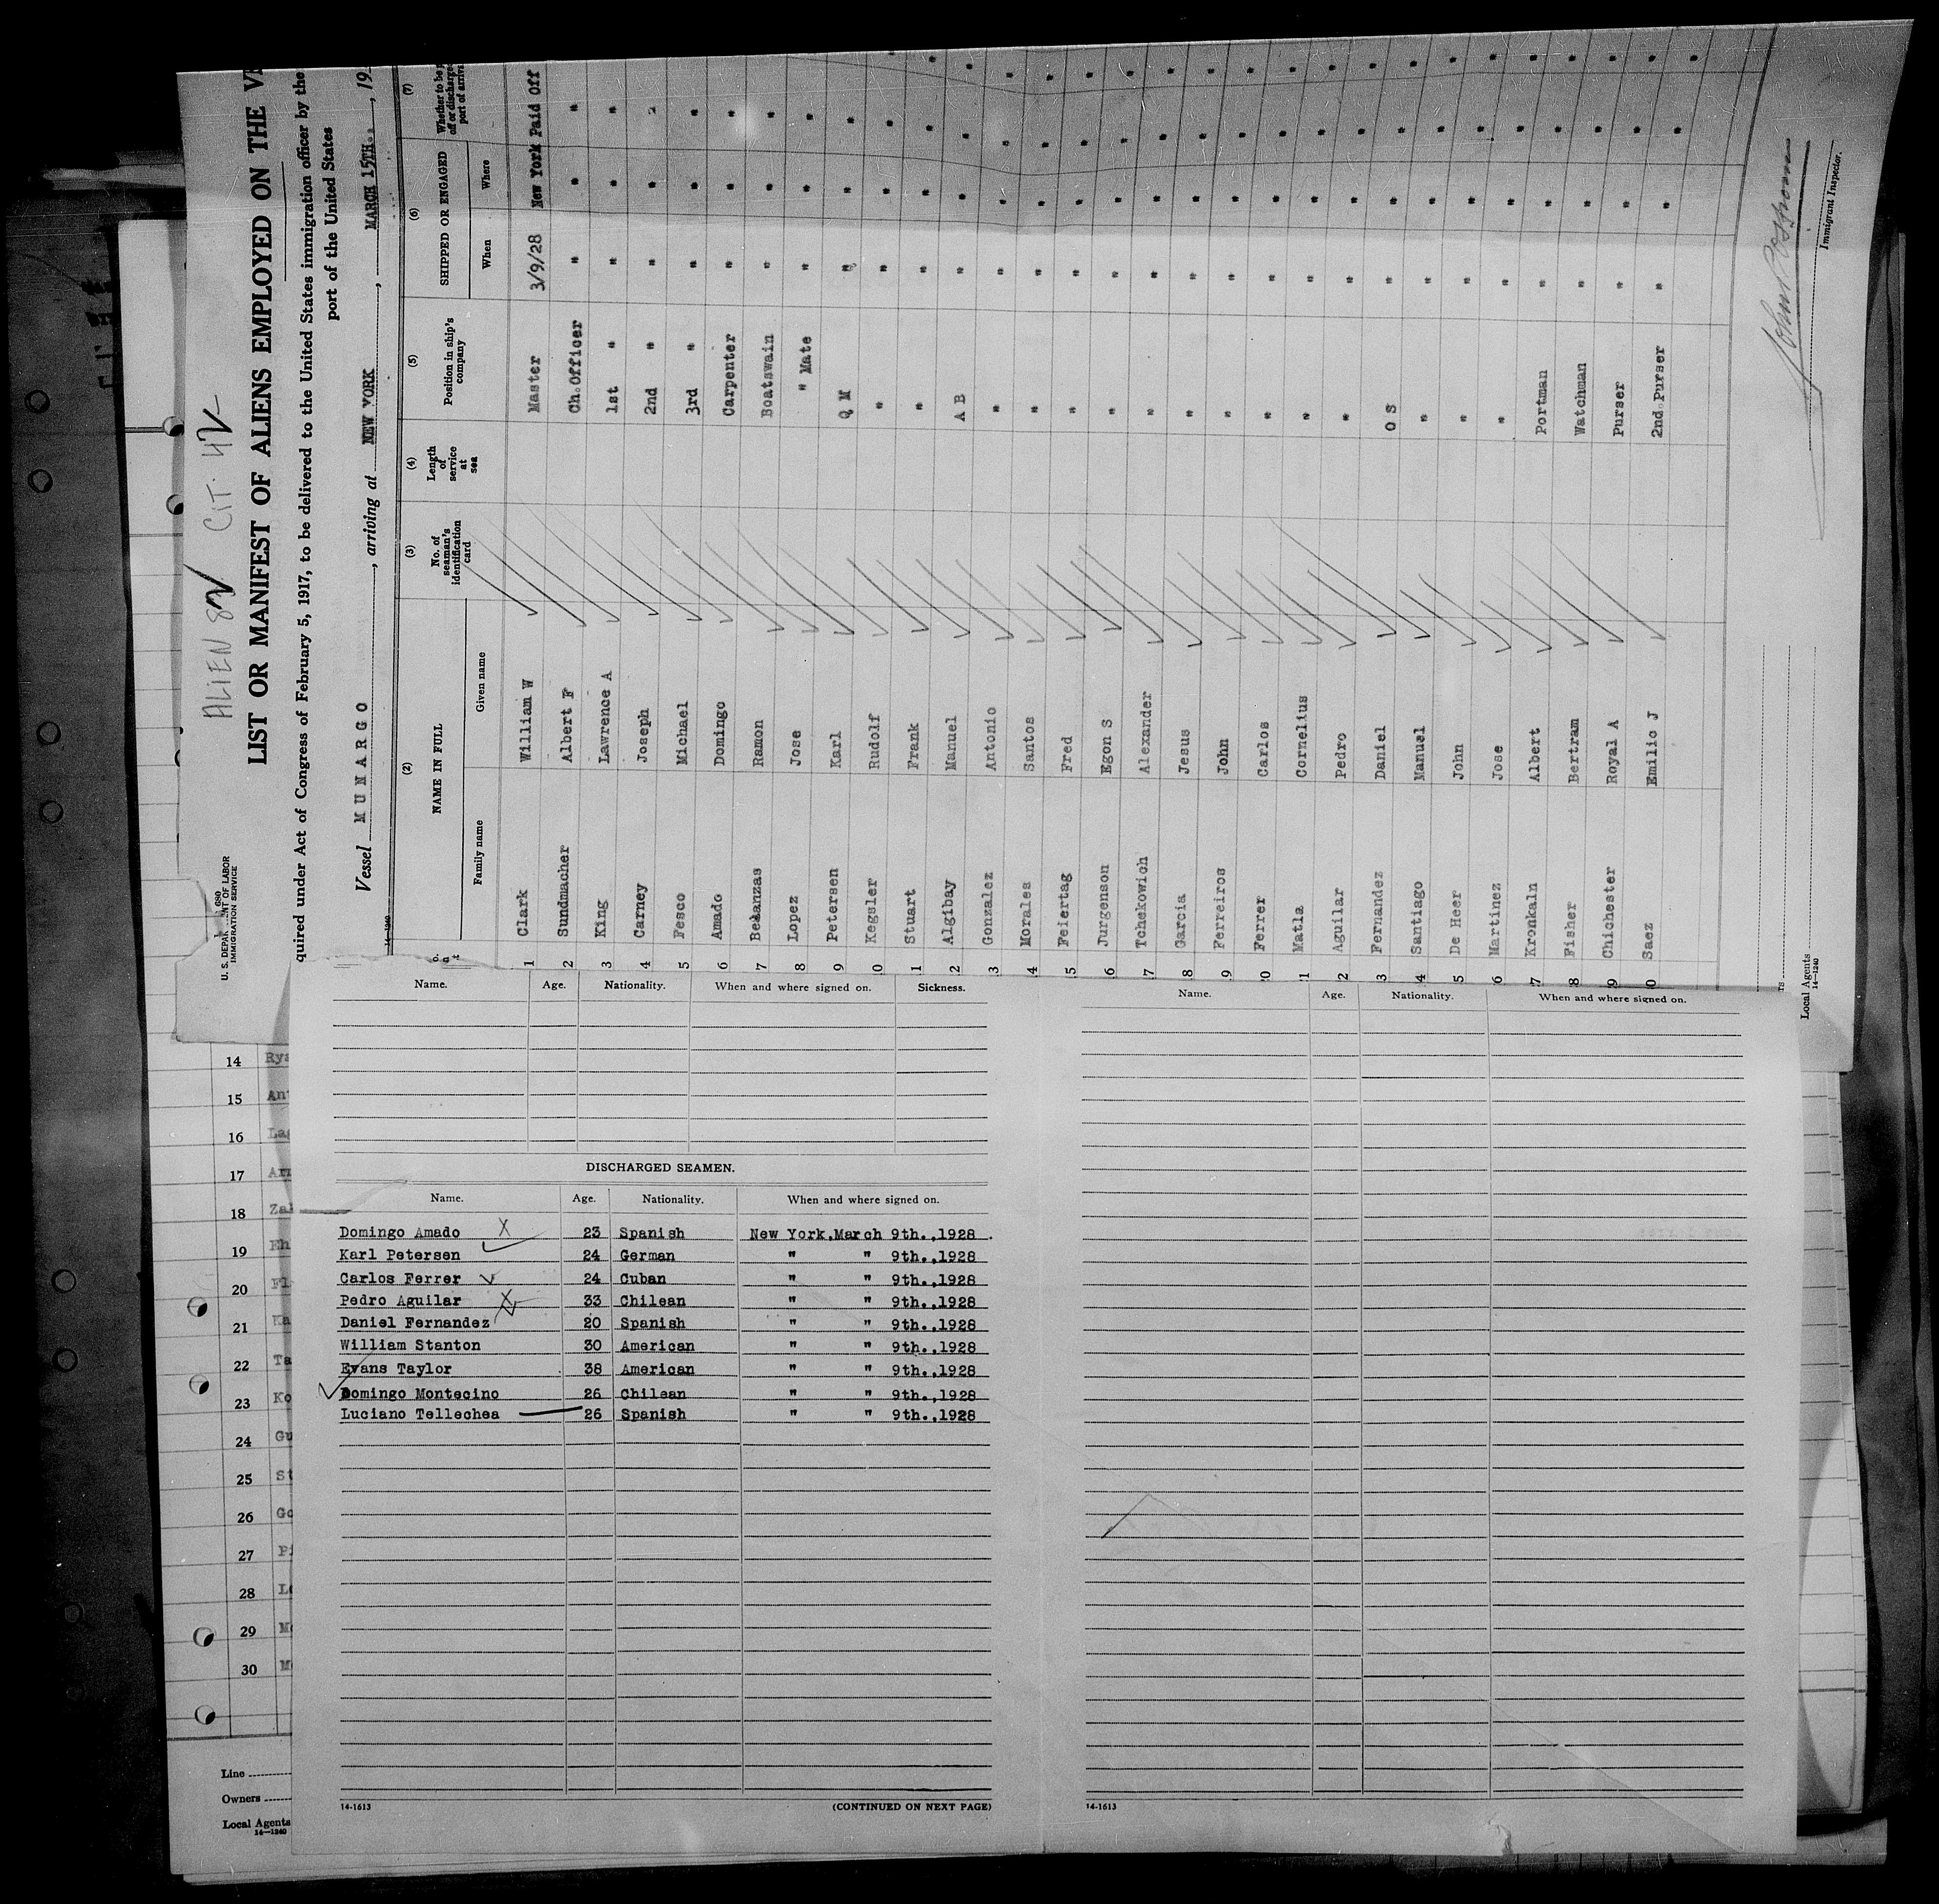 ALIEN 82 CIT. 42
LIST OR MANIFEST OF ALIENS EMPLOYED ON THE
quired under Act of Congress of February 5, 1917, to be delivered to the United States immigration officer by the
port of the United States
U. S. DEPAR NT OF LABOR
IMMIGRATION SERVICE
Vessel MUNARGO, arriving at NEW YORK, MARCH 15TH., 19
(2) (3) (4) (5) (6) (7)
NAME IN FULL No. of seaman's identification card Length of service at sea Position in ship's company SHIPPED OR ENGAGED Whether to be off or discharge port of
Family name Given name When Where
1 Clark William W Master 3/9/28 New York Paid Off
2 Sundmacher Albert F Ch.Officer " " "
3 King Lawrence A 1st " " " "
4 Carney Joseph 2nd " " " "
5 Fesco Michael 3rd " " " "
6 Amado Domingo Carpenter " " "
7 Belanzas Ramon Boatswain " " "
8 Lopez Jose " Mate " " "
9 Petersen Karl Q M " " "
0 Kegsler Rudolf " " " "
1 Stuart Frank " " " "
2 Algibay Manuel A B " " "
3 Gonzalez Antonio " " " "
4 Morales Santos " " " "
5 Feiertag Fred " " " "
6 Jurgenson Egon S " " " "
7 Tchekowich Alexander " " " "
8 Garcia Jesus " " " "
9 Ferreiros John " " " "
0 Ferrer Carlos " " " "
1 Matla Cornelius " " " "
2 Aguilar Pedro " " " "
3 Fernandez Daniel O S " " "
4 Santiago Manuel " " " "
5 De Heer John " " " "
6 Martinez Jose " " " "
7 Kronkaln Albert Portman " " "
8 Fisher Bertram Watchman " " "
9 Chichester Royal A Purser " " "
0 Saez Emilio J 2nd Purser " " "
Immigrant Inspector.
Local Agents
14-1240
Name. Age. Nationality. When and where signed on. Sickness.
DISCHARGED SEAMEN.
Name. Age. Nationality. When and where signed on.
Domingo Amado X 23 Spanish New York,March 9th.,1928.
Karl Petersen 24 German " " 9th.,1928
Carlos Ferrer 24 Cuban " " 9th.,1928
Pedro Aguilar X 33 Chilean " " 9th.,1928
Daniel Fernandez 20 Spanish " " 9th.,1928
William Stanton 30 American " " 9th.,1928
Evans Taylor 38 American " " 9th.,1928
Domingo Montecino 26 Chilean " " 9th.,1928
Luciano Tellechea 26 Spanish " " 9th.,1928
14-1613 (CONTINUED ON NEXT PAGE)
Name. Age. Nationality. When and where signed on.
14-1613
14 Rya
15 An
16 La
17 Ar
18 Za
19 Eh
20 Fl
21 Ka
22 Ta
23 Ko
24 Gu
25 St
26 Go
27 Pi
28 Lo
29 M
30 M
Line
Owners
Local Agents
14-1240